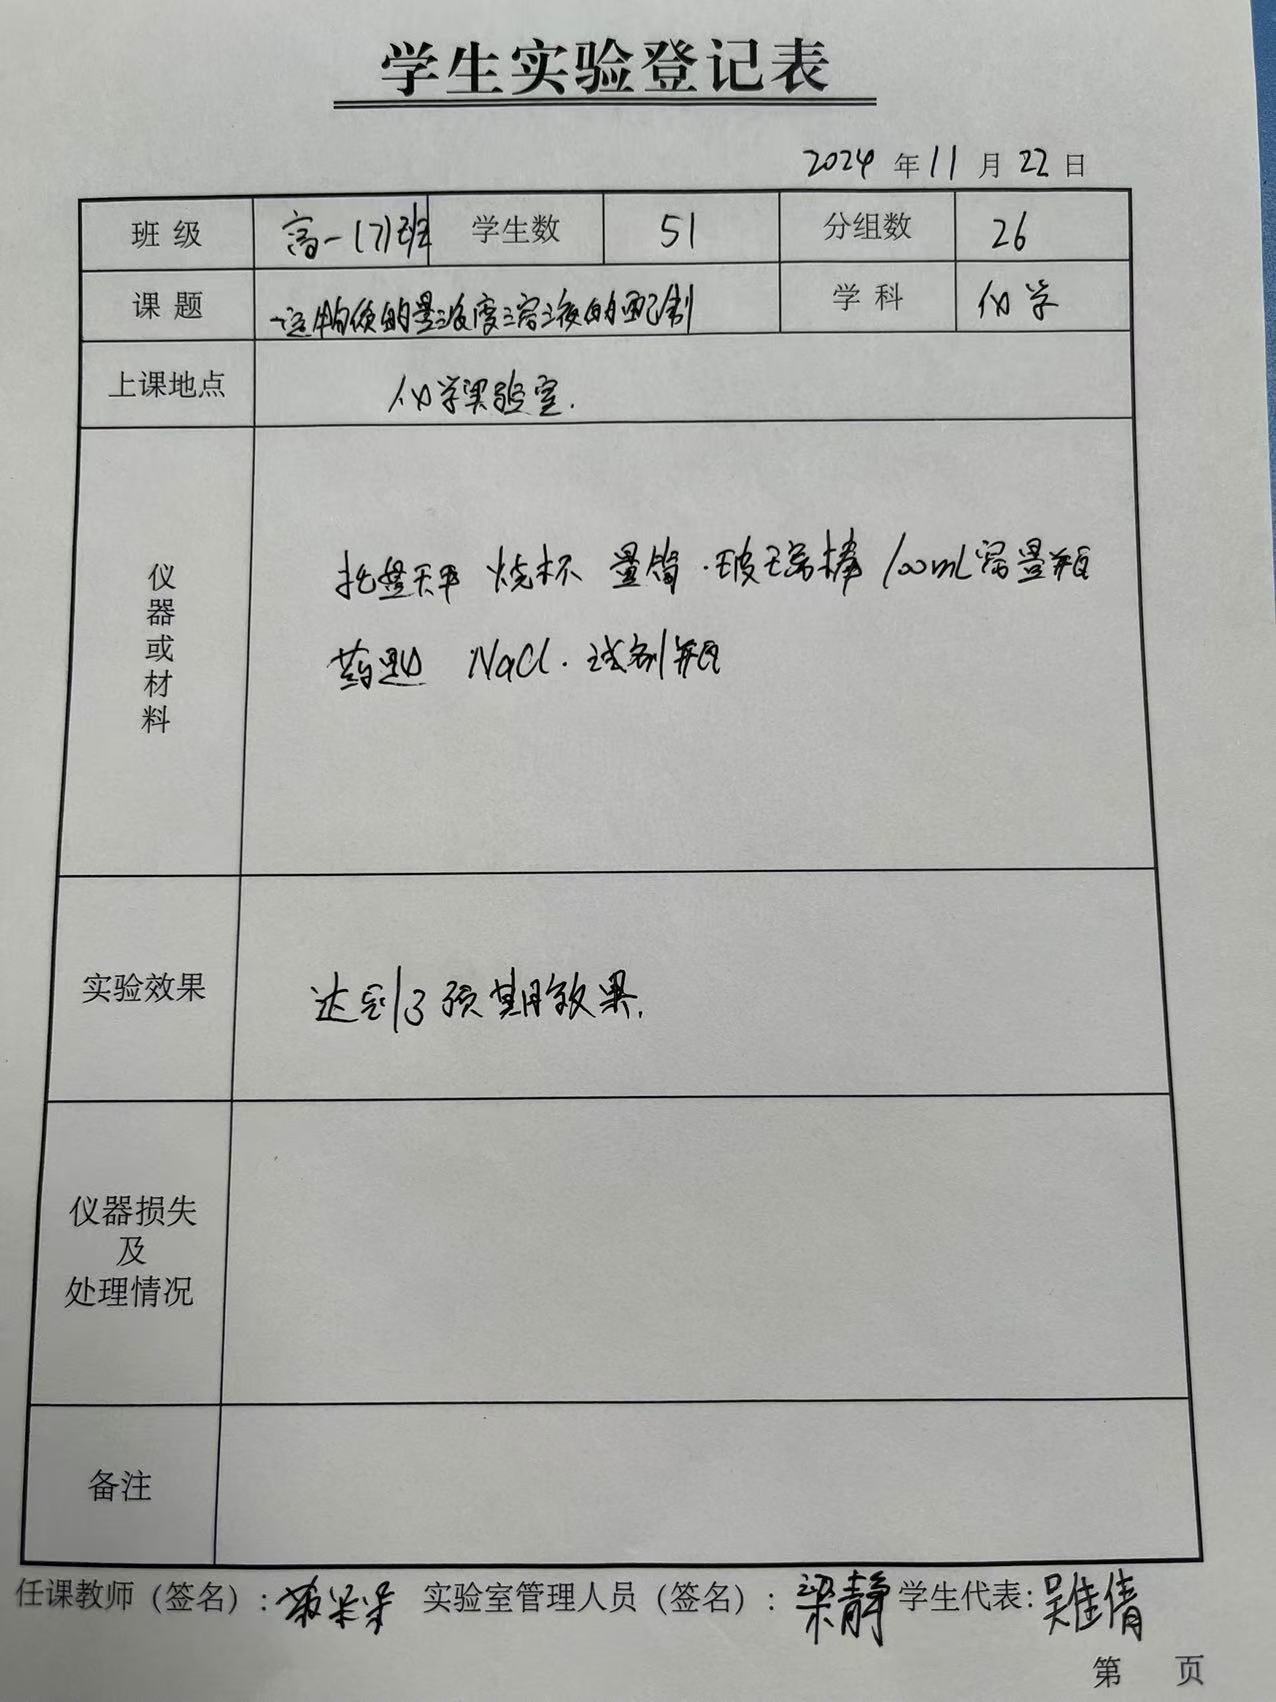 学生实验登记表
2024 年 11 月 22 日
班 级 高一(7)班 学生数 51 分组数 26
课 题 一定物质的量浓度溶液的配制 学 科 化学
上课地点 化学实验室.
仪器或材料
托盘天平 烧杯 量筒 · 玻璃棒 100mL容量瓶
药匙 NaCl · 试剂瓶
实验效果 达到了预期效果.
仪器损失
及
处理情况
备注
任课教师（签名）: 实验室管理人员（签名）: 梁静 学生代表: 吴佳倩
第 页